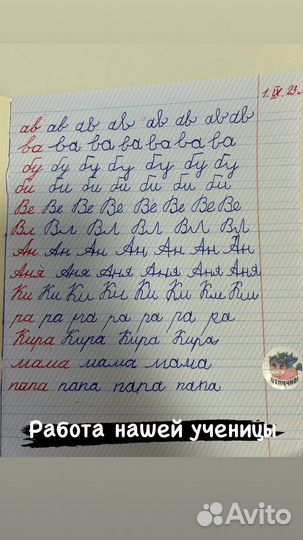 1. IX. 23 г.
ав ав ав ав ав ав ав ав
ва ва ва ва ва ва ва
бу бу бу бу бу бу бу
би би би би би би би
Ве Ве Ве Ве Ве Ве Ве Ве
Вл Вл Вл Вл Вл Вл Вл
Ан Ан Ан Ан Ан Ан Ан
Аня Аня Аня Аня Аня Аня
Ки Ки Ки Ки Ки Ки Ки Ки
ра ра ра ра ра ра ра
Кира Кира Кира Кира
мама мама мама
папа папа папа папа
Работа нашей ученицы
Avito